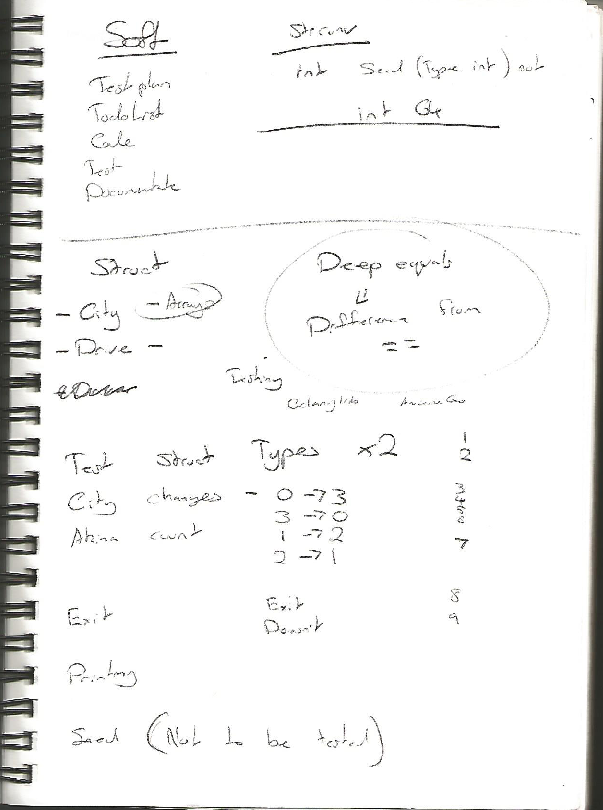 Soft
Test plan
Todo List
Code
Test
Documentate
Strconv
int Seed (Type int) not
int 64
Struct
- City - Arrays
- Drive -
Deep equals
Difference from
==
Testing
Test Struct Types x2 1
2
City changes - 0 -> 3 3
3 -> 0
Akina count 1 -> 2
2 -> 1
7
Exit Exit 8
Doesn't 9
Printing
Seed (Not to be tested)